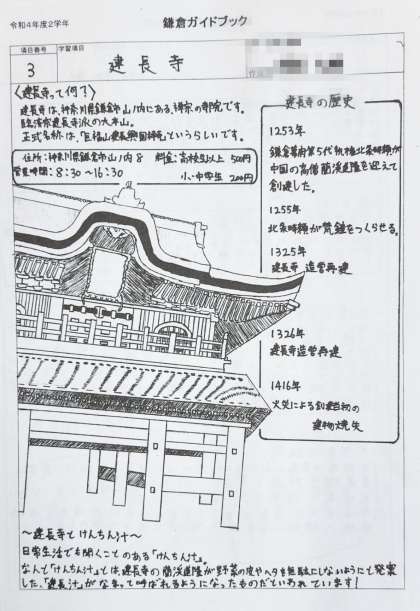 令和4年度2学年
鎌倉ガイドブック
項目番号
学習項目
3
建長寺
〈建長寺って何？〉
建長寺は、神奈川県鎌倉市山ノ内にある禅宗の寺院です。
臨済宗建長寺派の大本山。
正式名称は、「巨福山建長興国禅寺」というらしいです。
住所：神奈川県鎌倉市山ノ内8
料金：高校生以上 500円
営業時間：8:30～16:30
小・中学生 200円
建長寺の歴史
1253年
鎌倉幕府第5代執権北条時頼が
中国の高僧蘭渓道隆を迎えて
創建した。
1255年
北条時頼が梵鐘をつくらせる。
1325年
建長寺 造営再建
1326年
建長寺造営再建
1416年
火災による創建当初の
建物焼失
～建長寺とけんちん汁～
日常生活でも聞くことのある「けんちん汁」。
なんと「けんちん汁」とは、建長寺の蘭渓道隆が野菜の皮やヘタを無駄にしないようにと発案
した、「建長汁」がなまって呼ばれるようになったものだといわれています！